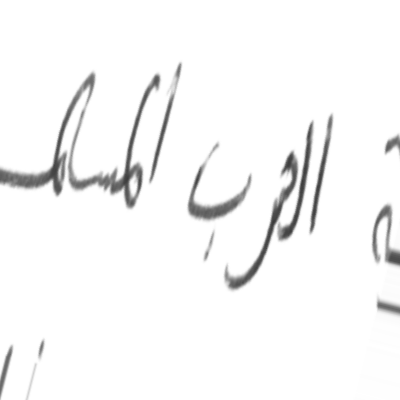 العرب المسلمـ